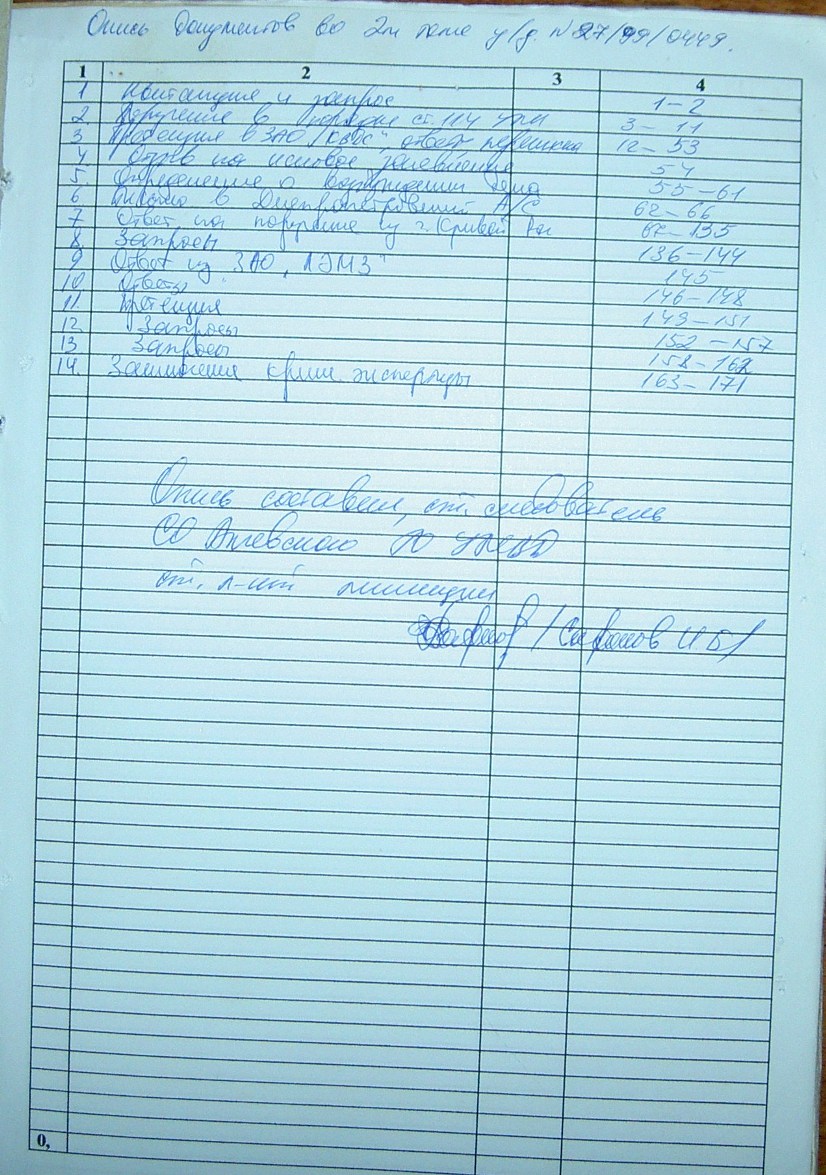 Опись документов во 2м томе у/д. N 27/99/0449.
1 2 3 4
1 Квитанция и запрос 1-2
2 Поручение в порядке ст. 114 УПК 3-11
3 Претензия в ЗАО ответ, переписка 12-53
4. Отзыв на исковое заявление 54
5. Определение о возбуждении дела 55-61
6 Письмо в Днепропетровский А/С 62-66
7 Ответ на поручение из г. Кривой Рог 67-135
8. Запросы 136-144
9 Ответ из ЗАО „ЛЭМЗ" 145
10 Ответы 146-148
11. Претензия 149-151
12. Запросы 152-157
13 Запросы 158-162
14. Заключения крим. экспертизы 163-171
Опись составил, ст. следователь
СО
ст. л-нт милиции
/ Сафронов И Б/
0,